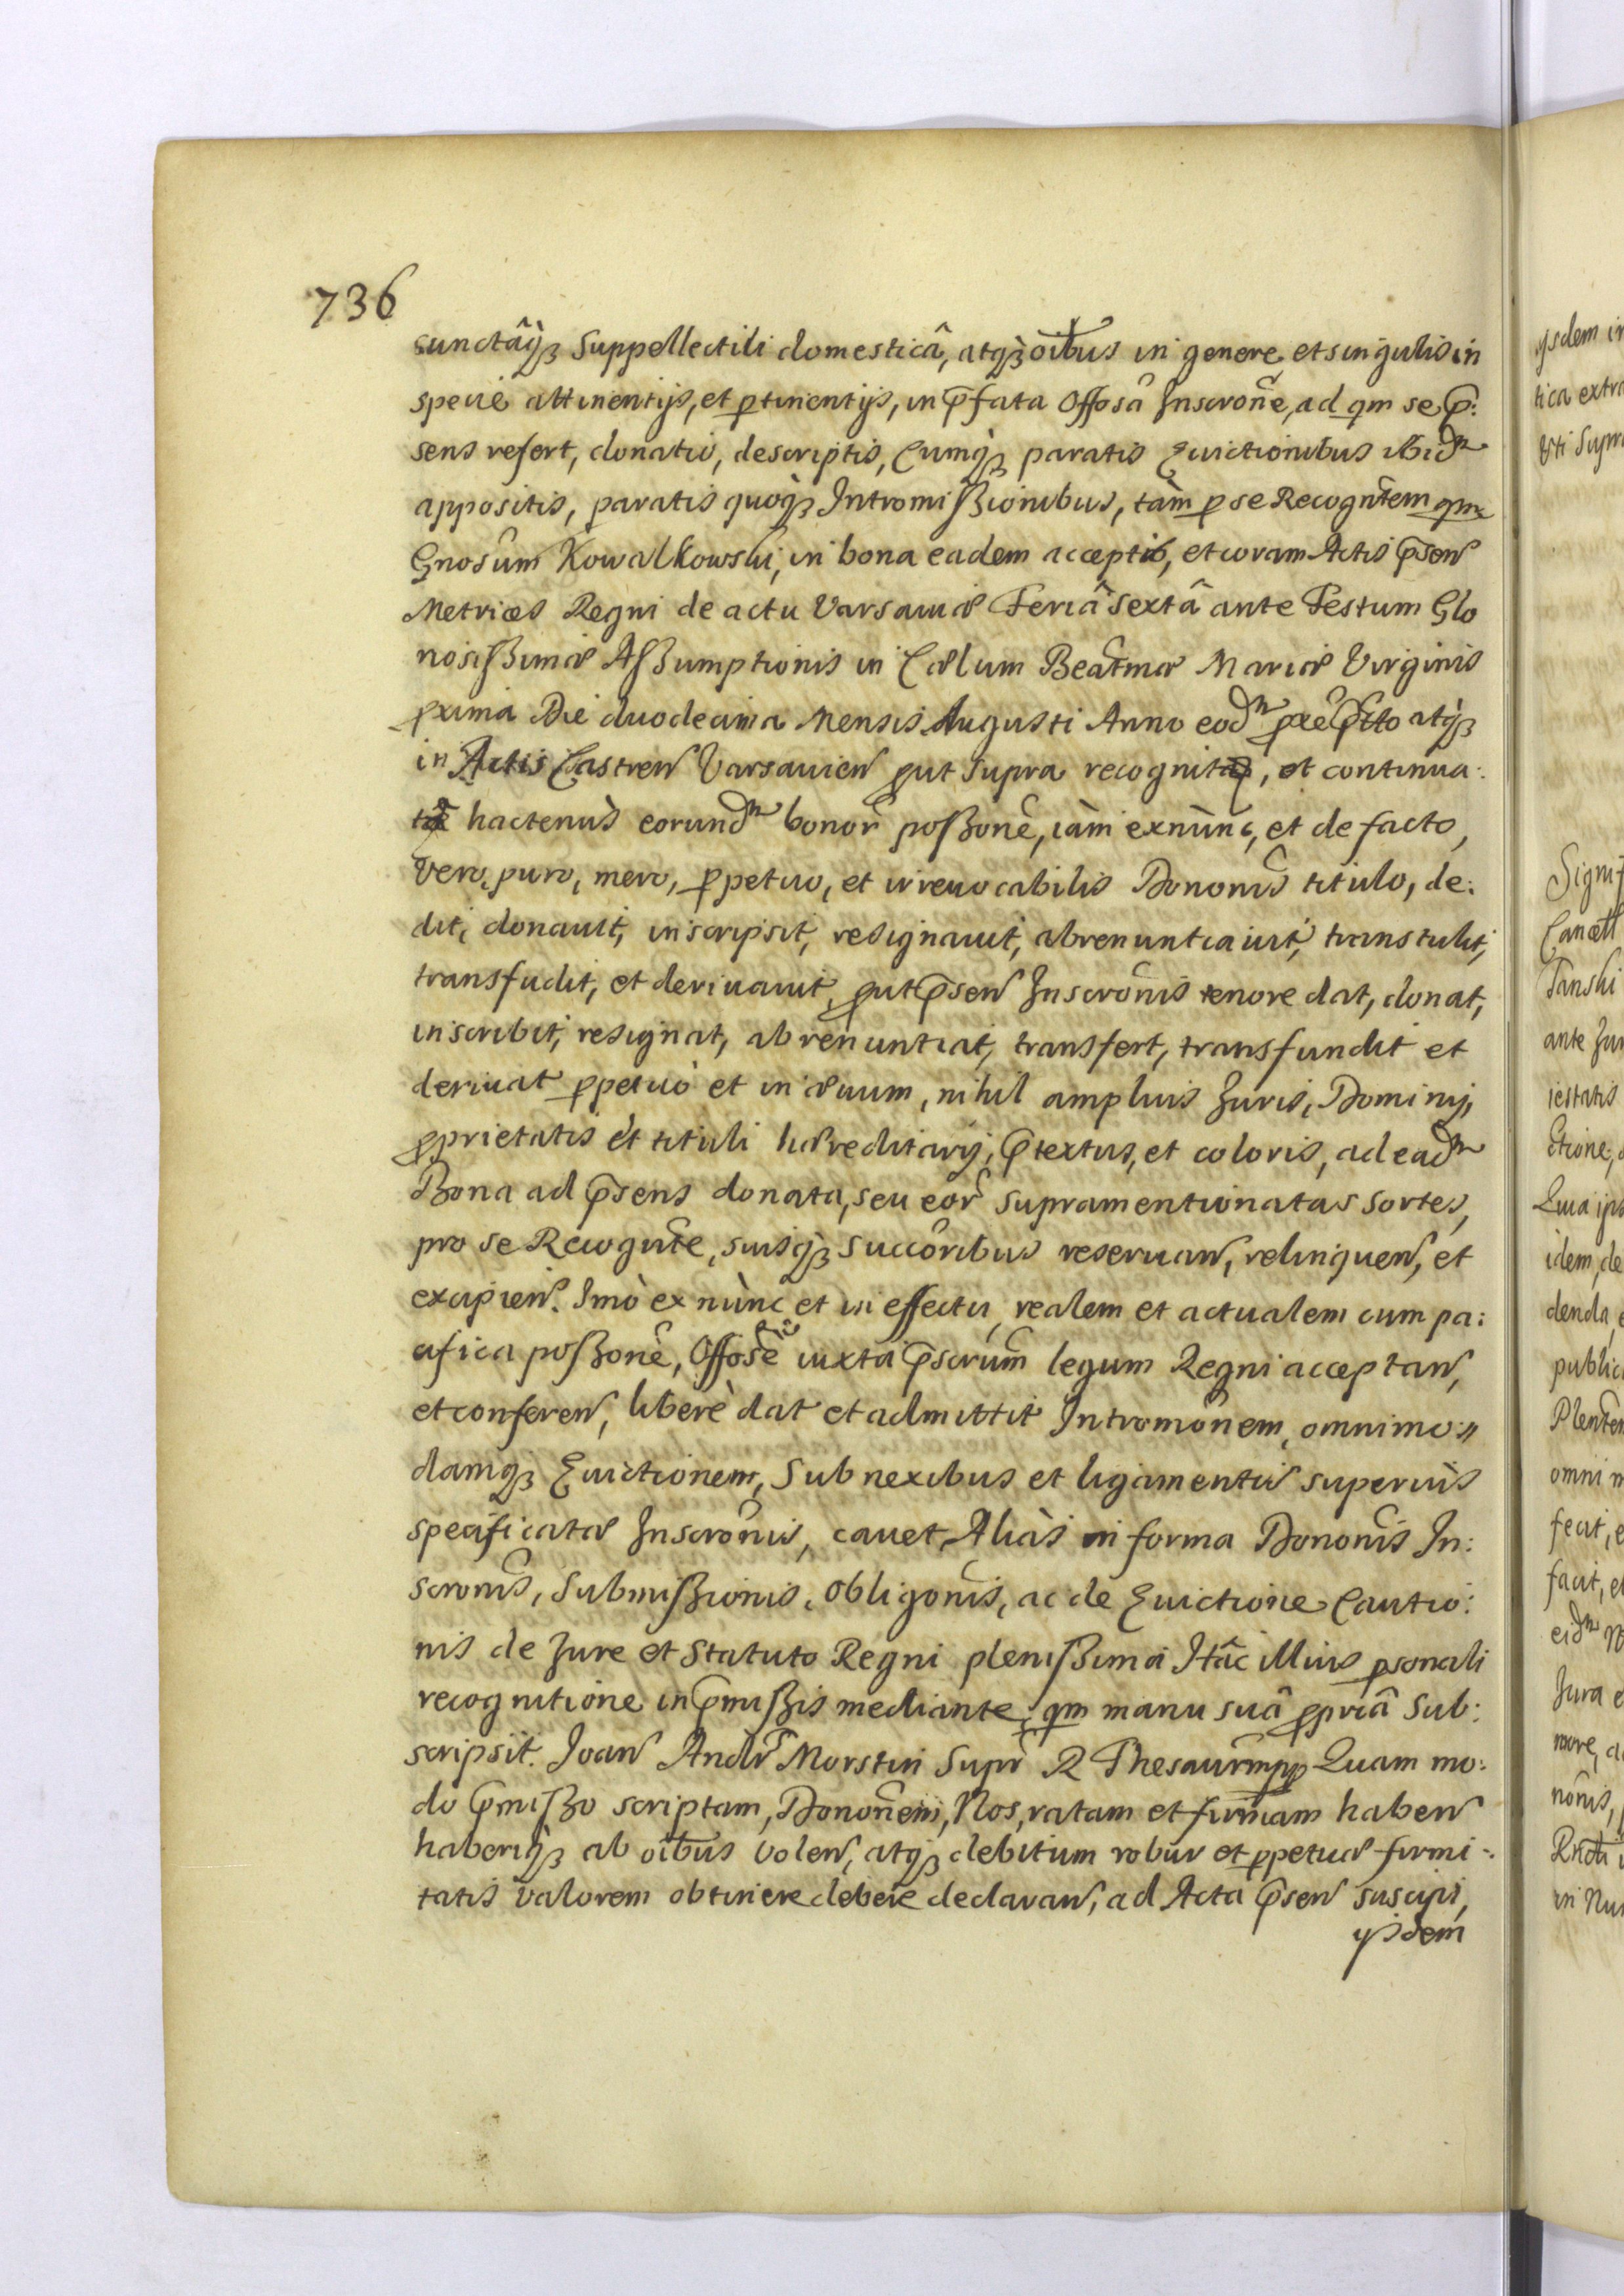 736
cunctâq̀ꝫ Suppellectili domesticâ, atq̀ꝫ oib̃us in genere et singulis in
specie attinentijs, et ꝑtinentijs, in p̃fata Offosâ Inscrone͂, ad qm se p̃:
sens refert, donatis, descriptis, Cumq̀ꝫ paratis Euictionibus ibid͂m
appositis, paratis quoq̀ꝫ Intromißionibus, tàm ꝑ se Recogn͂tem qm
Gnosum͂ Kowalkowski, in bona eadem acceptis, et coram Actis p̃sen͂
Metrices Regni de actu Varsauiæ Feriâ sextâ ante Festum Glo
riosißimæ Aßumptionis in Cælum Beat͂mæ Mariæ Virginis
ꝓxima Die duodecima Mensis Augusti Anno eod͂m ꝓxe͂ p̃tto atq̀ꝫ
in Actis Castren͂ Varsauien͂ ꝓut supra recognita, et continua:
tâ hactenùs eorund͂m bonor͂ poßone͂, iàm exnùnc, et de facto,
vero, puro, mero, ꝑpetuo, et irreuocabilis Dononis͂ titulo, de:
dit, donauit, inscripsit, resignauit, abrenuntiauit, transtulit,
transfudit, et deriuauit, ꝓut p̃sen͂ Inscronis͂ tenore dat, donat,
inscribit, resignat, abrenuntiat, transfert, transfundit et
deriuat ꝑpetuò et in æuum, nihil amplius Juris, Dominij,
ꝓprietatis et tituli hæreditarij, p̃textus, et coloris, ad ead͂m
Bona ad p̃sens donata, seu eor͂ supramentionatas sortes,
pro se Recogn͂te, suisq̀ꝫ succor͂ibus reseruan͂, relinquen͂, et
excipien͂. Imò ex nùnc et in effectu, realem et actualem cum pa:
cifica poßone͂, Offose͂ iuxta p̃scrum͂ legum Regni acceptan͂,
et conferen͂, liberè dat et admittit Intromon͂em, omnimo:
damq̀ꝫ Euictionem, Sub nexibus et ligamentis superiùs
specificatæ Inscronis͂, cauet, Aliàs in forma Dononis͂ In:
scronis͂, Submißionis, obligonis͂, ac de Euictione Cautio:
nis de Jure et Statuto Regni plenißima Itâc illius ꝑsonali
recognitione in p̃mißis mediante, qm manu suâ ꝓpriâ Sub:
scripsit. Joan͂ Andr͂ Morstin Supr͂ R Thesaur͂ mpp Quam mo:
do p̃mißo scriptam, Donon͂em, Nos, ratam et firmam haben͂
haberiq̀ꝫ ab oib̃us volen͂, atq̀ꝫ debitum robur et ꝑpetuæ firmi:
tatis valorem obtinere debere declaran͂, ad Acta p̃sen͂ suscipi,
ijsdem